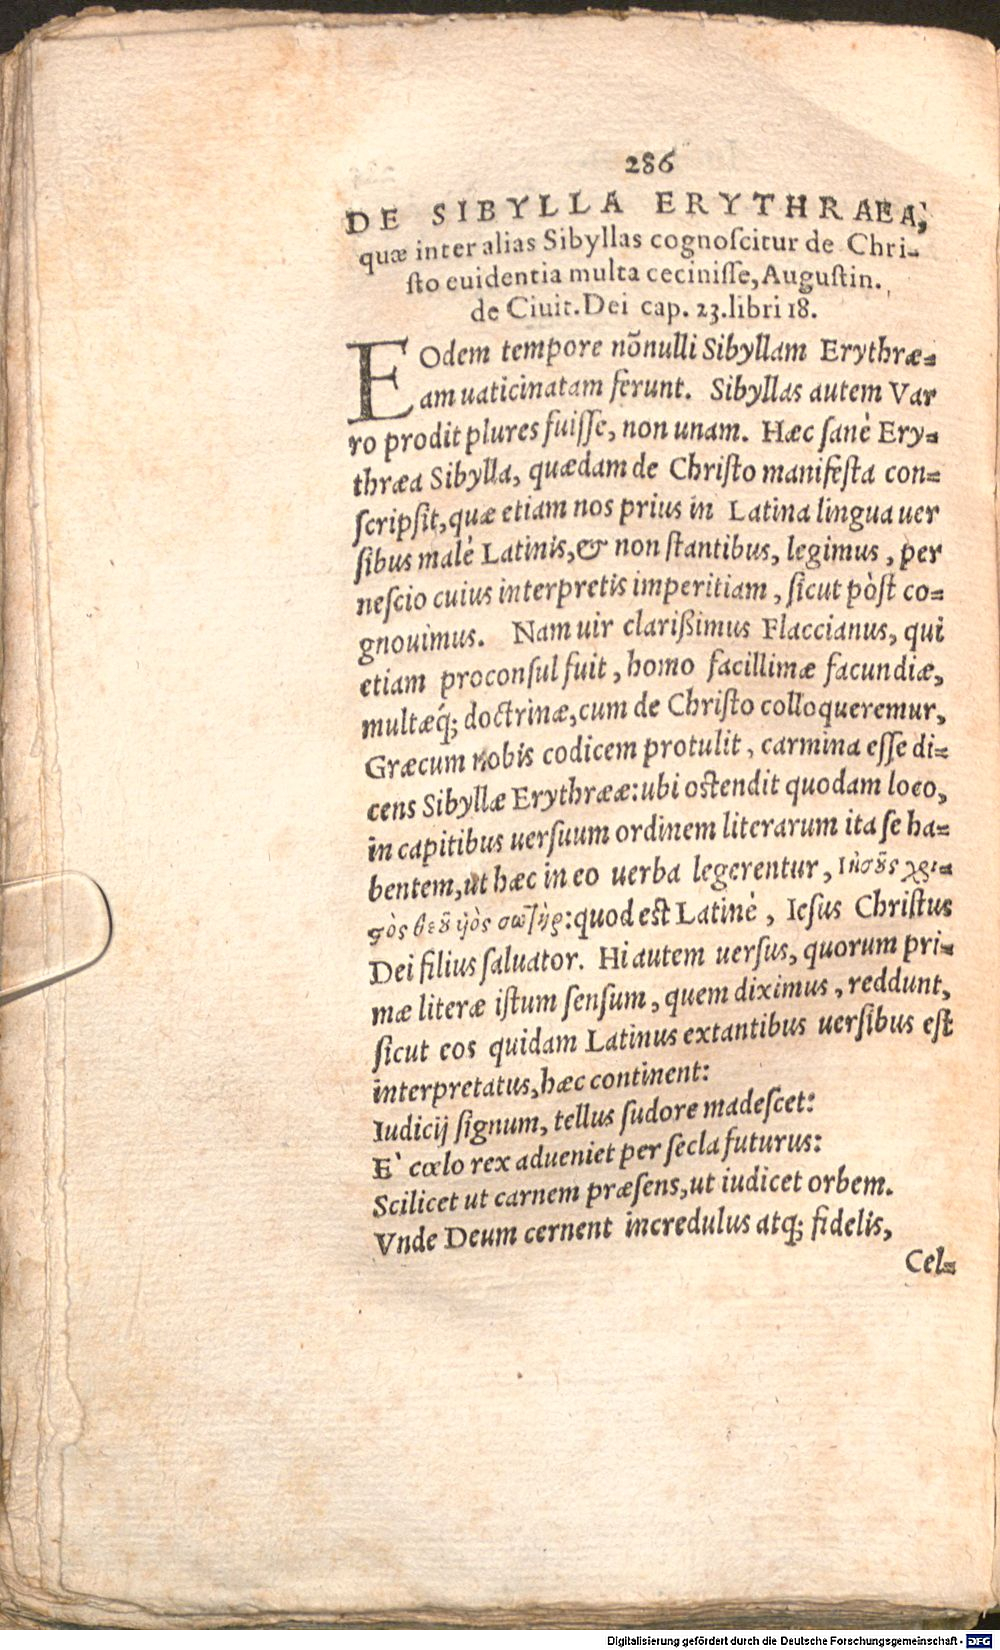 286
DE SIBYLLA ERYTHRAEA,
quæ inter alias Sibyllas cognoſcitur de Chri-
ſto euidentia multa ceciniſſe, Auguſtin.
de Ciuit. Dei cap. 23. libri 18.
EOdem tempore nõnulli Sibyllam Erythræ-
am uaticinatam ferunt. Sibyllas autem Var
ro prodit plures fuiſſe, non unam. Hæc ſanè Ery-
thræa Sibylla, quædam de Chriſto manifeſta con-
ſcripſit, quæ etiam nos prius in Latina lingua uer
ſibus malè Latinis, & non ſtantibus, legimus, per
neſcio cuius interpretis imperitiam, ſicut pòſt co-
gnouimus. Nam uir clariſsimus Flaccianus, qui
etiam proconſul fuit, homo facillimæ facundiæ,
multæq́; doctrinæ, cum de Chriſto colloqueremur,
Græcum nobis codicem protulit, carmina eſſe di-
cens Sibyllæ Erythrææ: ubi oſtendit quodam loco,
in capitibus uerſuum ordinem literarum ita ſe ha-
bentem, ut hæc in eo uerba legerentur, Ιησȣ̃ς χρι-
ςὸς θεȣ̃ ὑιὸς σωτὴρ: quod eſt Latinè, Ieſus Chriſtus
Dei filius ſaluator. Hi autem uerſus, quorum pri-
mæ literæ iſtum ſenſum, quem diximus, reddunt,
ſicut eos quidam Latinus extantibus uerſibus eſt
interpretatus, hæc continent:
Iudicij ſignum, tellus ſudore madeſcet:
E` cœlo rex adueniet per ſecla futurus:
Scilicet ut carnem præſens, ut iudicet orbem.
Vnde Deum cernent incredulus atq; fidelis,
Cel-
Digitalisierung gefördert durch die Deutsche Forschungsgemeinschaft - DFG